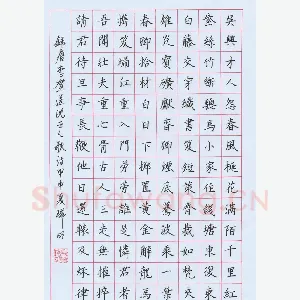 吳興才人怨春風桃花滿陌千里紅
紫絲竹斷驄馬小家住錢塘東復東
白藤交穿織書笈短策齊裁如梵夾
雄光寶礦獻春卿煙底驀波乘一葉
春卿拾材白日下擲置黃金解龍馬
攜笈歸江重入門勞勞誰是憐君者
吾聞壯夫重心骨古人三走無摧捽
請君待旦事長鞭他日還轅及秋律
錄唐李賀送沈亞之歌詩甲午夏